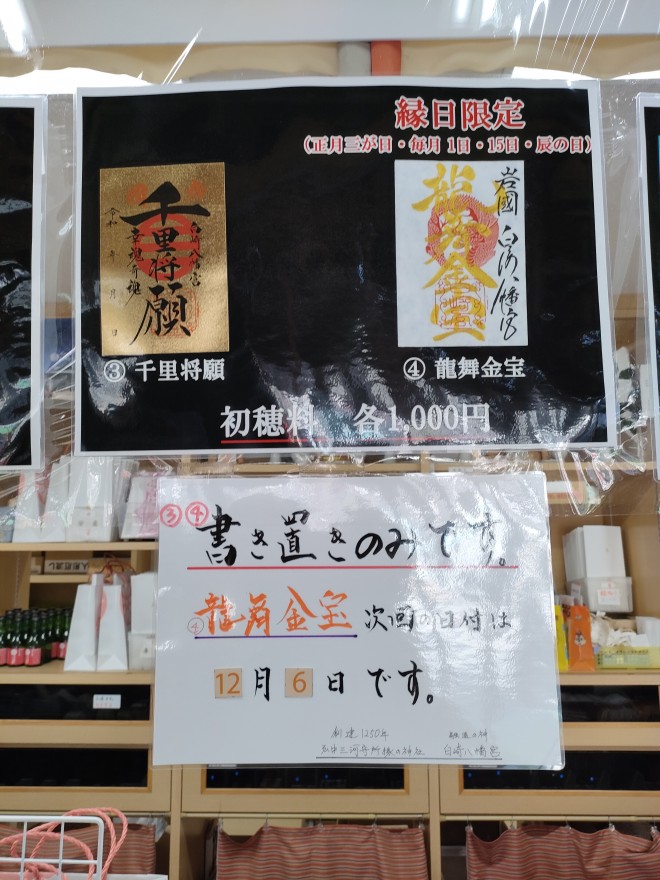 縁日限定
(正月三が日・毎月 1日・15日・辰の日)
千里将願
岩國 白崎八幡宮
③ 千里将願
④ 龍舞金宝
初穂料 各1,000円
③④
書き置きのみです。
④龍舞金宝 次回の日付は
12月6日です。
創建1250年
白崎八幡宮